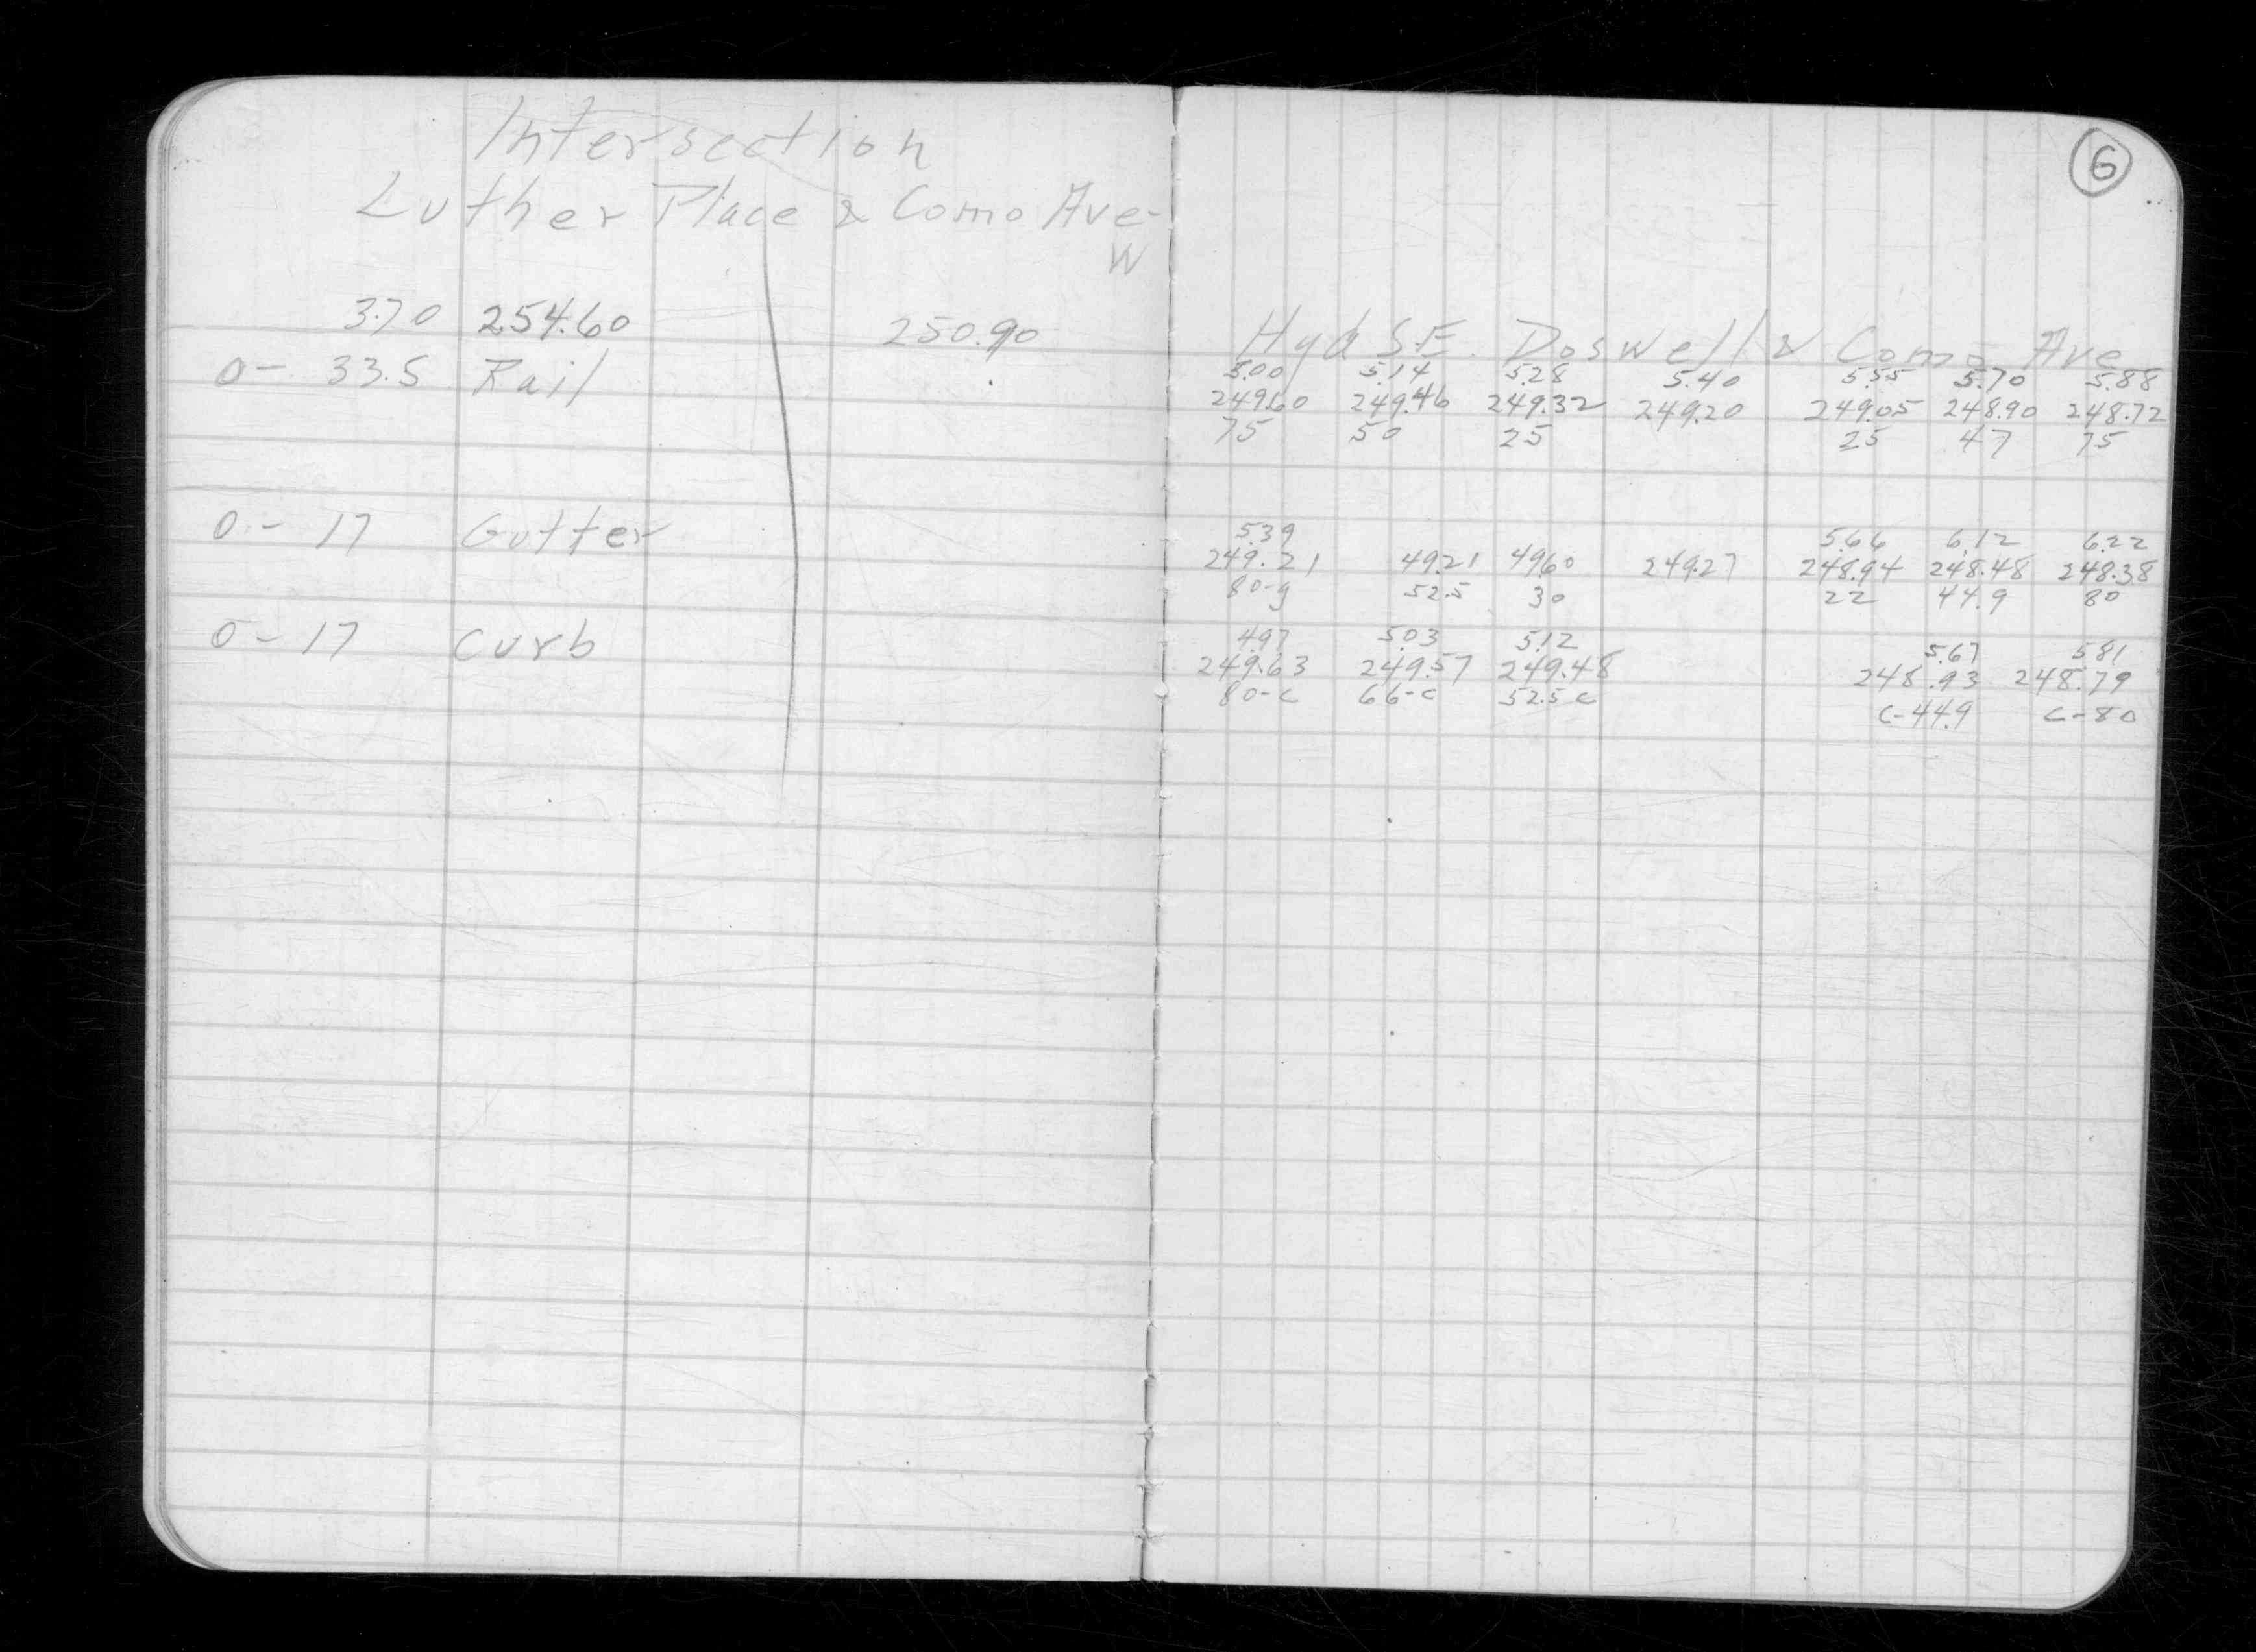 Intersection
Luther Place & Como Ave-
W
3.70 254.60 250.90
0- 33.5 Rail
0- 17 Gutter
0- 17 Curb
6
Hyd S.E. Doswell & Como Ave
5.00 5.14 5.28 5.40 5.55 5.70 5.88
249.60 249.46 249.32 249.20 249.05 248.90 248.72
75 50 25 25 47 75
5.39 5.66 6.12 6.22
249.21 49.21 49.60 249.27 248.94 248.48 248.38
80-g 52.5 30 22 44.9 80
4.97 5.03 5.12 5.67 5.81
249.63 249.57 249.48 248.93 248.79
80-c 66-c 52.5 c c-44.9 c-80